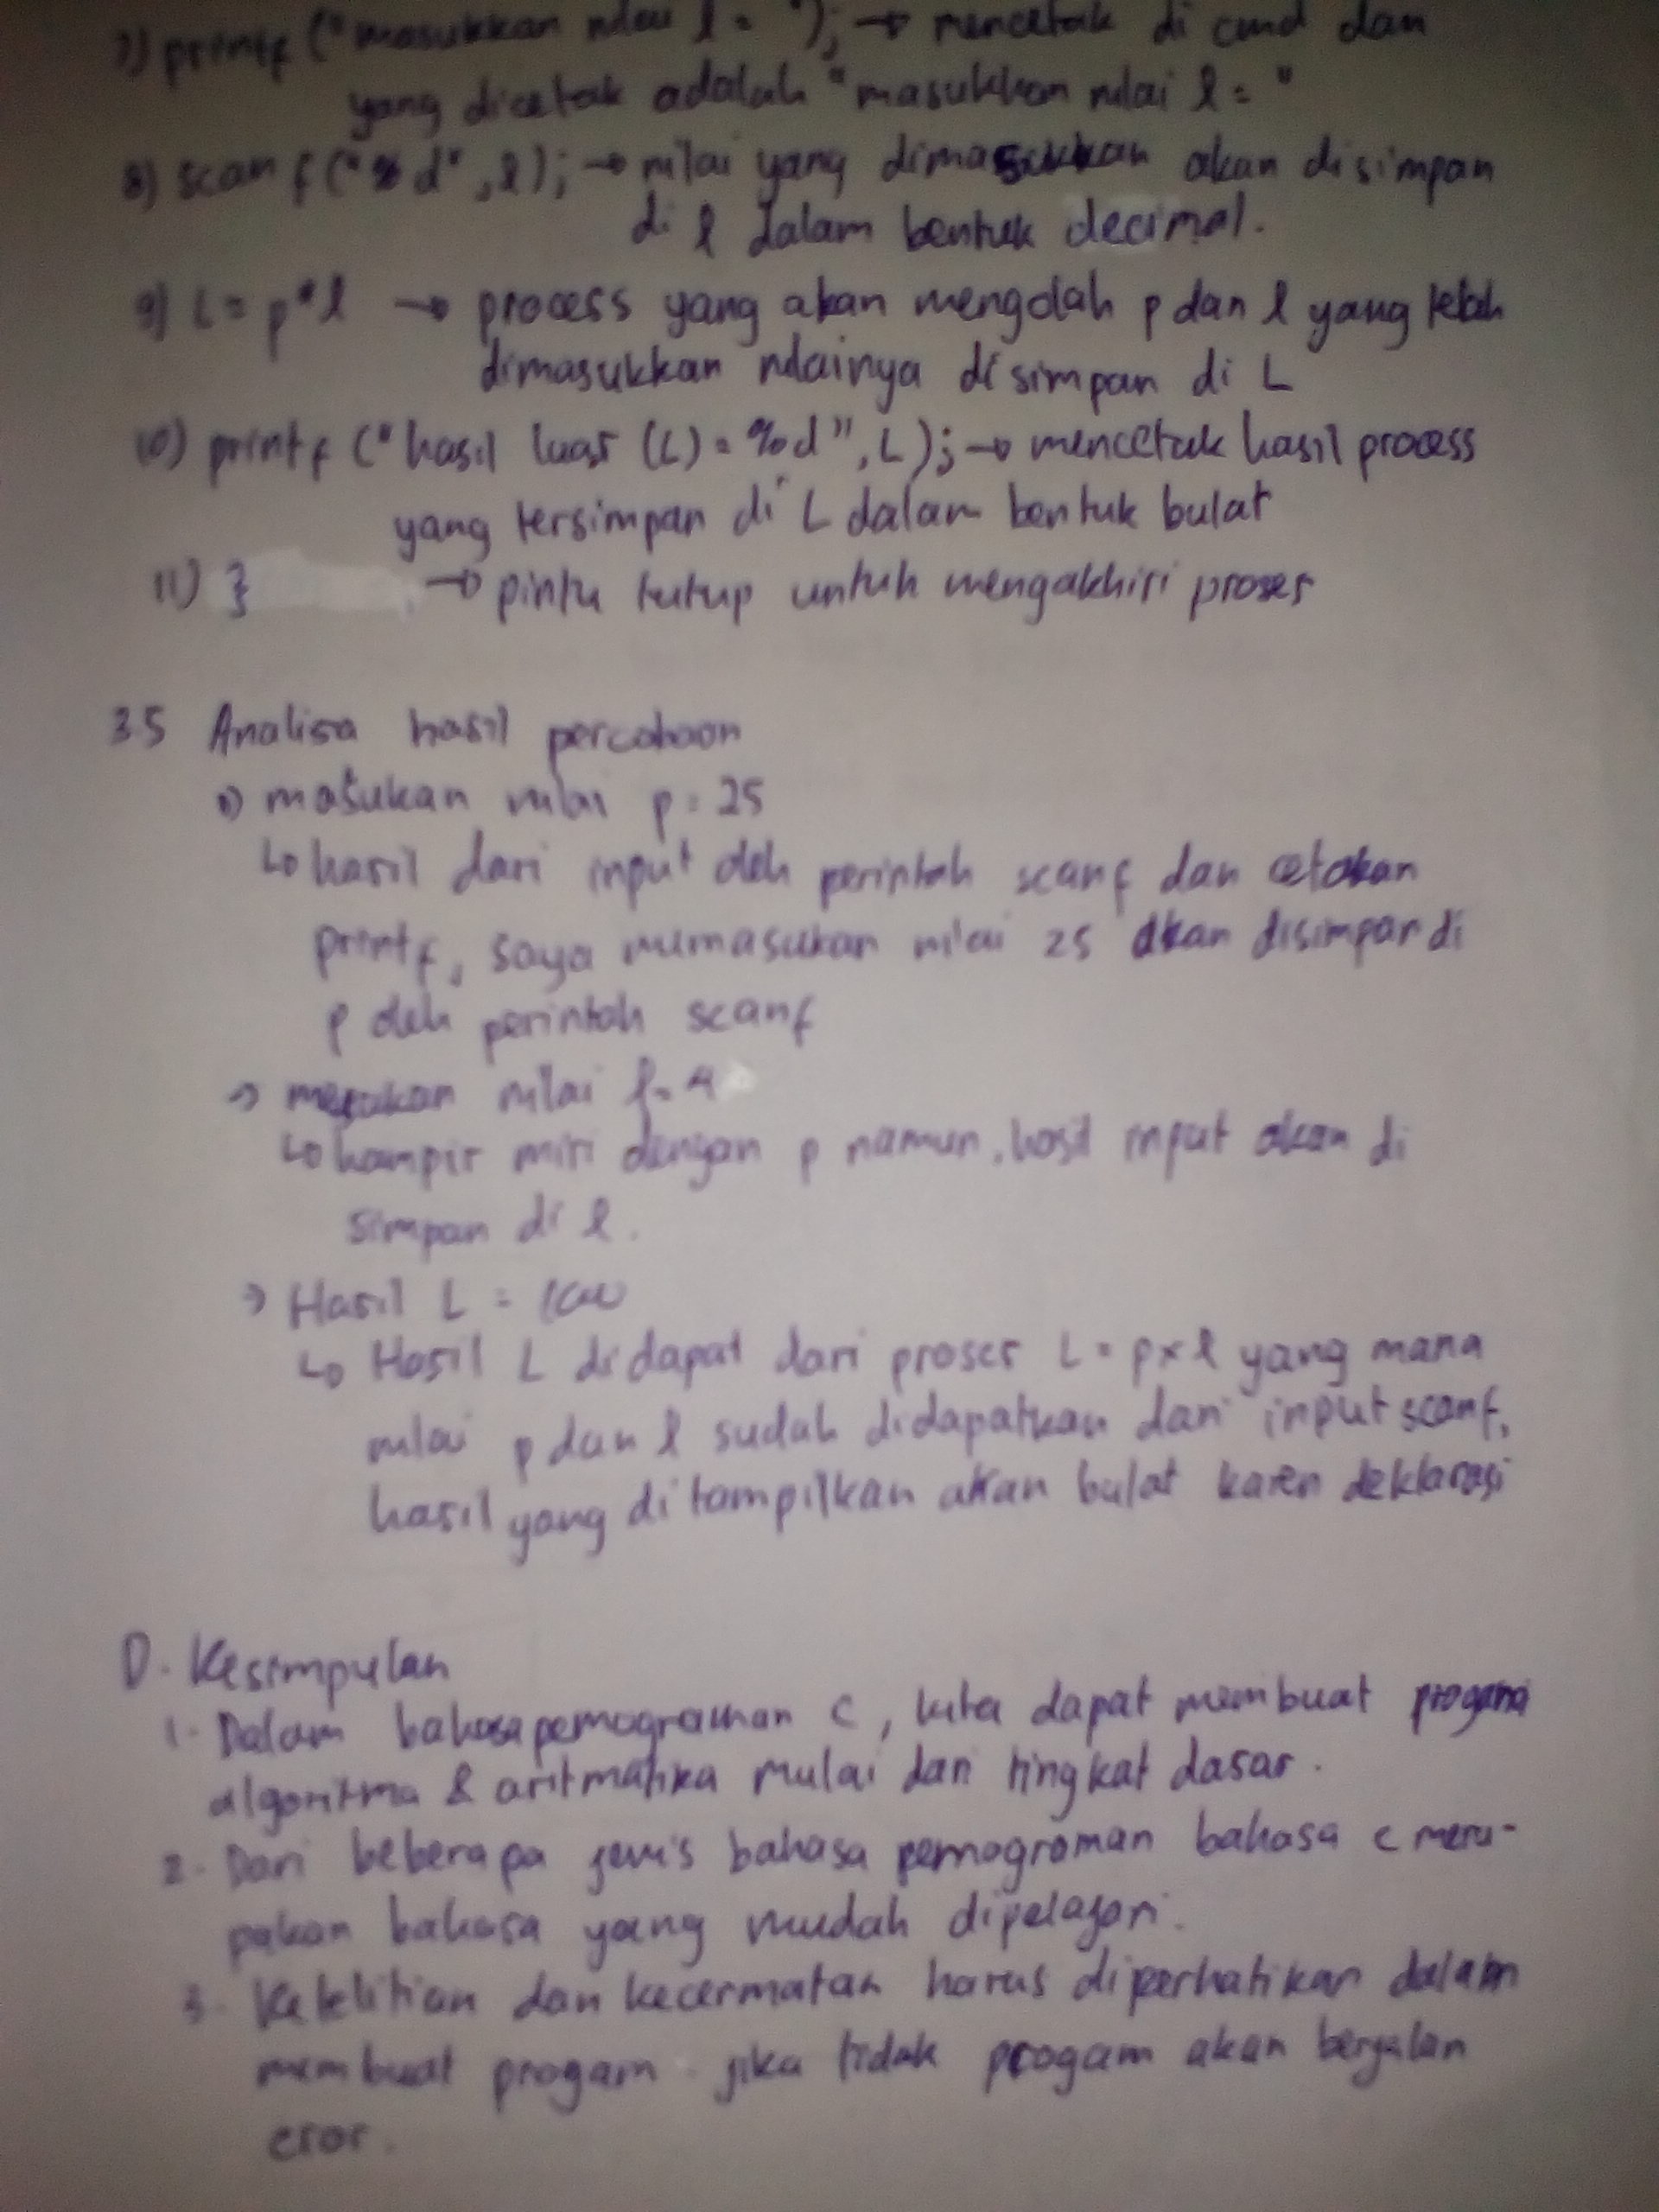 7) printf ("masukkan nilai l = "); → mencetak di cmd dan
yang dicetak adalah "masukkan nilai l = "
8) scanf ("%d", l); → nilai yang dimasukkan akan disimpan
di l dalam bentuk decimal.
9) L = p*l → process yang akan mengolah p dan l yang telah
dimasukkan nilainya disimpan di L
10) printf ("hasil luas (L) = %d", L); → mencetak hasil process
yang tersimpan di L dalam bentuk bulat
11) } → pintu tutup untuk mengakhiri proses
3.5 Analisa hasil percobaan
masukan nilai p = 25
↳ hasil dari input oleh perintah scanf dan cetakan
printf, saya memasukan nilai 25 akan disimpan di
p oleh perintah scanf
→ masukan nilai l = 4
↳ hampir miri dengan p namun, hasil input akan di
simpan di l.
→ Hasil L = 100
↳ Hasil L didapat dari proses L = p x l yang mana
nilai p dan l sudah didapatkan dari input scanf,
hasil yang ditampilkan akan bulat karen deklarasi
D. Kesimpulan
1. Dalam bahasa pemograman C, kita dapat membuat
algoritma & aritmatika mulai dari tingkat dasar.
2. Dari beberapa jenis bahasa pemograman bahasa c meru-
pakan bahasa yang mudah dipelajari.
3. Ketelitian dan kecermatan harus diperhatikan dalam
membuat progam. jika tidak progam akan berjalan
eror.